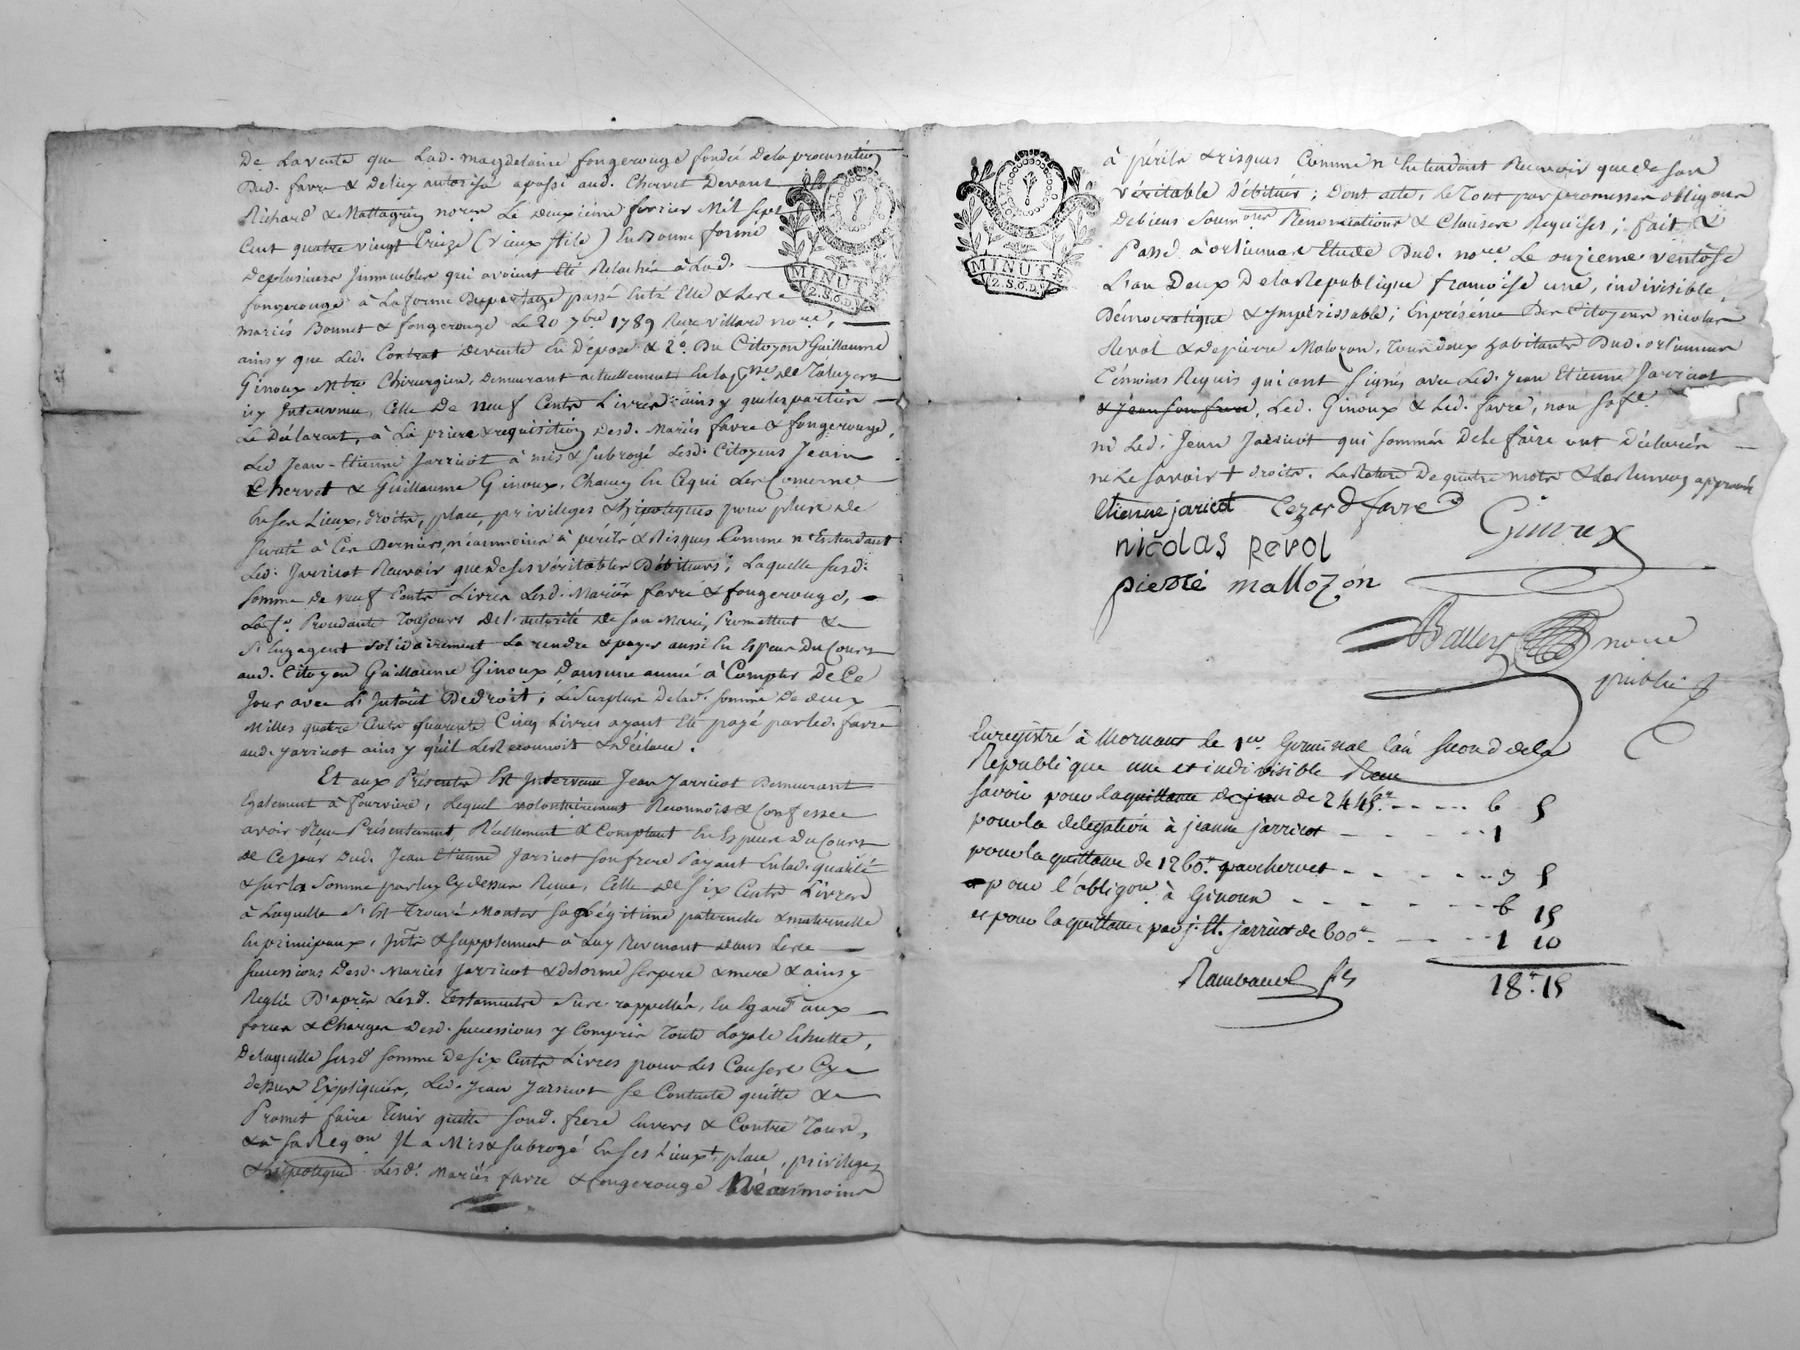 De Lavente que Lad. magdelaine fongerouge fondée de la procuration
Dud. favre & de luy autorisé a passé aud. Chervet Devant
Richard & Mattagrin nores Le deuxième fevrier Mil Sept
Cent quatre vingt treize (vieux stile) En Bonne forme
Deplusieurs Immeubles qui avoient Eté Relachés à Lad.
fongerouge à La forme Dupartage passé Entre Elle & Lesd
mariés Bonnet & fongerouge Le 20 7bre 1789 Reçu villard nore,
ainsy que Led. Contrat De vente En Dépose & 2o. Du Citoyen Guillaume
Ginoux Mtre Chirurgien, Demeurant actuellement En la Cne de Taluyers
icy Intervenu, Celle De neuf Cents Livres ainsy que les parties
Le Déclarent, à La priere & requisition Desd. Mariés favre & fongerouge,
Led Jean-Etienne Jarricot à mis & subrogé Lesd. Citoyens Jean
Chervet & Guillaume Ginoux, Chacun En Cequi Les Concerne
En ses Lieux, droits, place, privileges & hipoteques pour plus de
sureté à Ces Derniers, néanmoins à périls & Risques Comme n'Entendant
Led. Jarricot Recevoir que de ses véritables Débiteurs; Laquelle susd.
somme de neuf Cents Livres Lesd. Mariés favre & fongerouge,
La fe. Procédante Toujours de l'autorité de son Mari, Promettent &
s'Engagent solidairement La rendre & payer aussi En Espece Du Cours
aud. Citoyen Guillaume Ginoux Dans une année à Compter De Ce
Jour avec L'Intérêt De droit; Le surplus de lad. somme De deux
Milles quatre Cents Quarente Cinq Livres ayant Eté payé par led. favre
aud. Jarricot ainsy qu'il Le Reconnoit & Déclare.
Et aux Présentes Est Intervenu Jean Jarricot Demeurant
Egalement à fourviere, Lequel volontairement Reconnoit & Confesse
avoir Reçu Présentement Réellement & Comptant En Espece Du Cours
de Ce jour Dud. Jean Etienne Jarricot son frere Payant En lad. qualité
& sur la Somme par luy Cy dessus Reçue, Celle de six Cents Livres
à Laquelle s'Est trouvé Monter sa Légitime paternelle & maternelle
En principaux, Intts & supplement à Luy Revenant dans Les
successions Desd. Mariés Jarricot & Delorme ses pere & mere & ainsy
Reglée D'après Lesd. Testaments sure rappellés, En Egard aux
forces & Charges Desd. successions y Compris Toute Loyale Echutte,
De laquelle susd. somme de six Cents Livres pour Les Causes Cy
dessus Expliquées, Led. Jean Jarricot se Contente quitte &
Promet faire Tenir quitte Sond. frere Envers & Contre Tous,
& à sa Reqon Il a Mis & subrogé En ses Lieux, place, privileges
& hipoteques Lesd. Mariés favre & fongerouge Néanmoins
MINUT.
2.S.O.D.
MINUT.
2.S.O.D.
à périls & risques Comme n'Entendant Recevoir que de son
véritable Débiteur; Dont acte, le Tout par promesses obligons
De biens soumons Renonciations & Clauses Requises; fait &
Passé à orliennas Etude Dud. nore Le onzieme ventôse
L'an Deux De la Republique francoise une, indivisible,
Démocratique & Impérissable; En présence Des Citoyens nicolas
Revol & de pierre Malozon, Tous deux habitants Dud. orliennas
Témoins Requis qui ont signés avec Led. Jean Etienne Jarricot
& Jean son frere, Led. Ginoux & Led. favre, non sa fe.
ni Led. Jean Jarricot qui sommés De le faire ont Déclarés
ne Le savoir + droits. La Rature De quatre mots & Le Renvoy approuvé
Etienne jaricot Cezard favre
Ginoux
nicolas Revol
pierre mallozon
nore
public
Enregistré à Mornant le 1er. Germinal l'an Second de la
Republique une et indivisible Reçu
Savoir pour la quittance de 2445tt - - - - 6 5
pour la delegation à jeanne jarricot - - - - 1
pour la quittance de 1260tt. par chervet - - - - 3 5
pour l'obligon à Ginoux - - - - 6 15
et pour la quittance par j. Et. jarricot de 600tt - - - - 1 10
Rambaud fils 18tt. 15